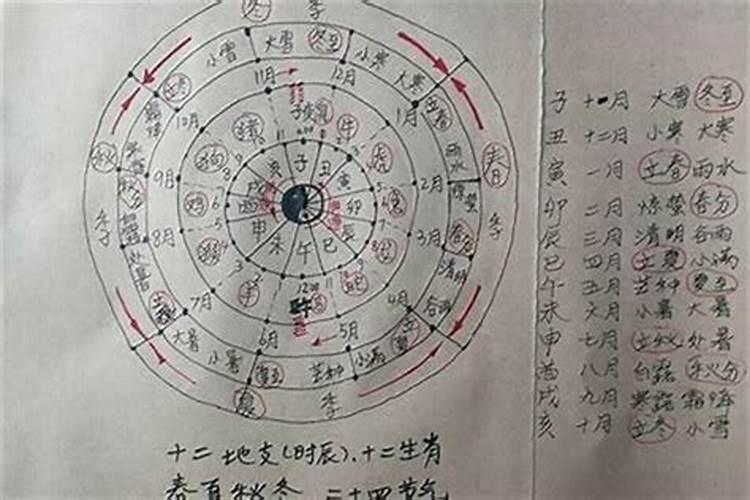 冬 季
小雪 大雪 冬至 小寒 大寒
立冬 11月 12月 立春
10月 子 鼠 1月 雨水
猪 牛
狗 虎
秋 亥 子 丑 春
9月 戌 寅 2月 惊蛰
秋分 鸡 酉 卯 兔
季 8月 申 辰 3月 春分 季
猴 未 午 巳 龙 清明
处暑 羊 蛇 谷雨
立秋 7月 1200 4月
大暑 6月 5月 立夏
小暑 夏至 芒种 小满
夏 季
十二地支(时辰)、十二生肖
春夏秋冬 二十四节气
子 十一月 大雪 冬至
丑 十二月 小寒 大寒
寅 一月 立春 雨水
卯 二月 惊蛰 春分
辰 三月 清明 谷雨
巳 四月 立夏 小满
午 五月 芒种 夏至
未 六月 小暑 大暑
申 七月 立秋 处暑
酉 八月 白露 秋分
戌 九月 寒露 霜降
亥 十月 立冬 小雪